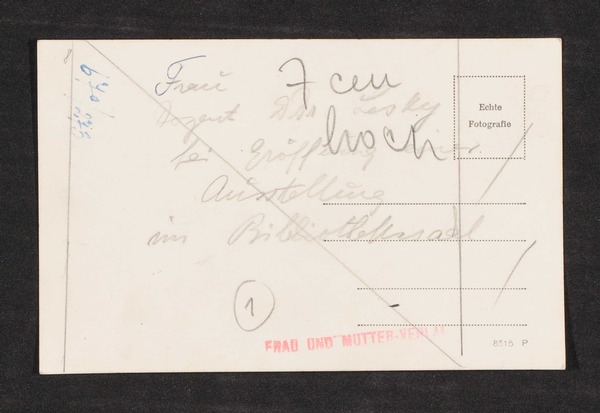 8
Frau
7 cm
hoch
Dozent Dr. Lesky
bei Eröffnung einer
Ausstellung
im Bibliothekssaal
Echte
Fotografie
1
FRAU UND MUTTER-VERLAG
8515 P